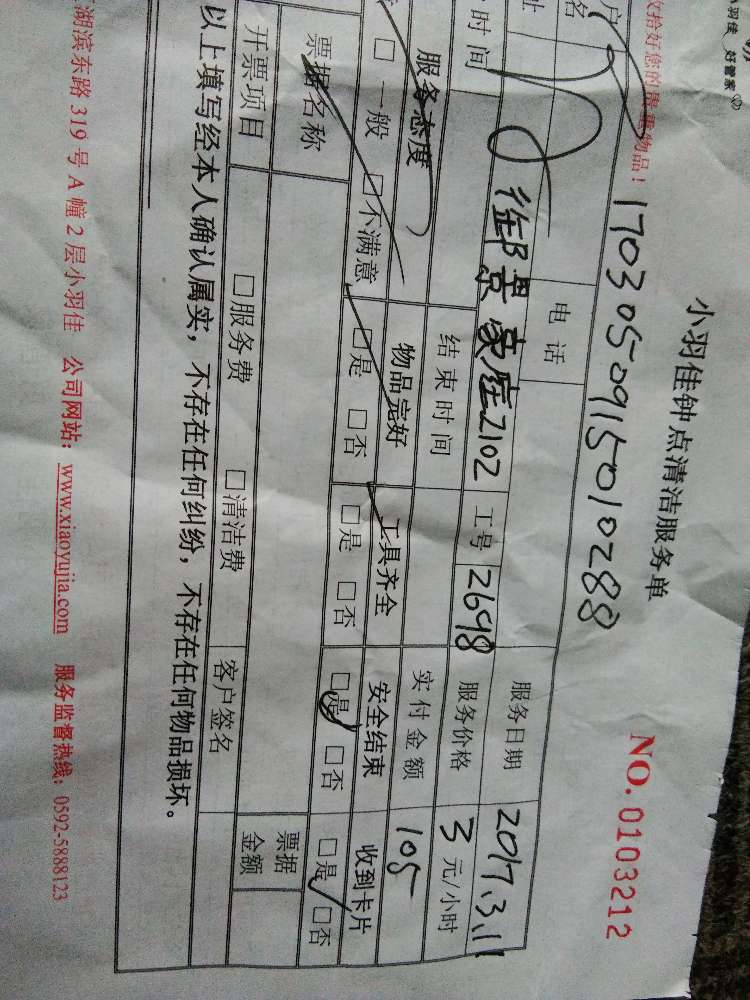 小羽佳 好管家
小羽佳钟点清洁服务单
NO. 0103212
您的贵重物品！
1703050915010288
电话
服务日期 2017.3.11
景豪庭2102 工号 2698
时间 结束时间 服务价格 3 元/小时
实付金额 105
服务态度 物品完好 工具齐全 安全结束 收到卡片
□ 一般 □不满意 □是 □否 □是 □否 □是 □否 □是 □否
票据名称 票据金额
开票项目 □服务费 □清洁费 客户签名
以上填写经本人确认属实，不存在任何纠纷，不存在任何物品损坏。
湖滨东路 319 号 A 幢 2 层小羽佳 公司网站: www.xiaoyujia.com 服务监督热线: 0592-5888123